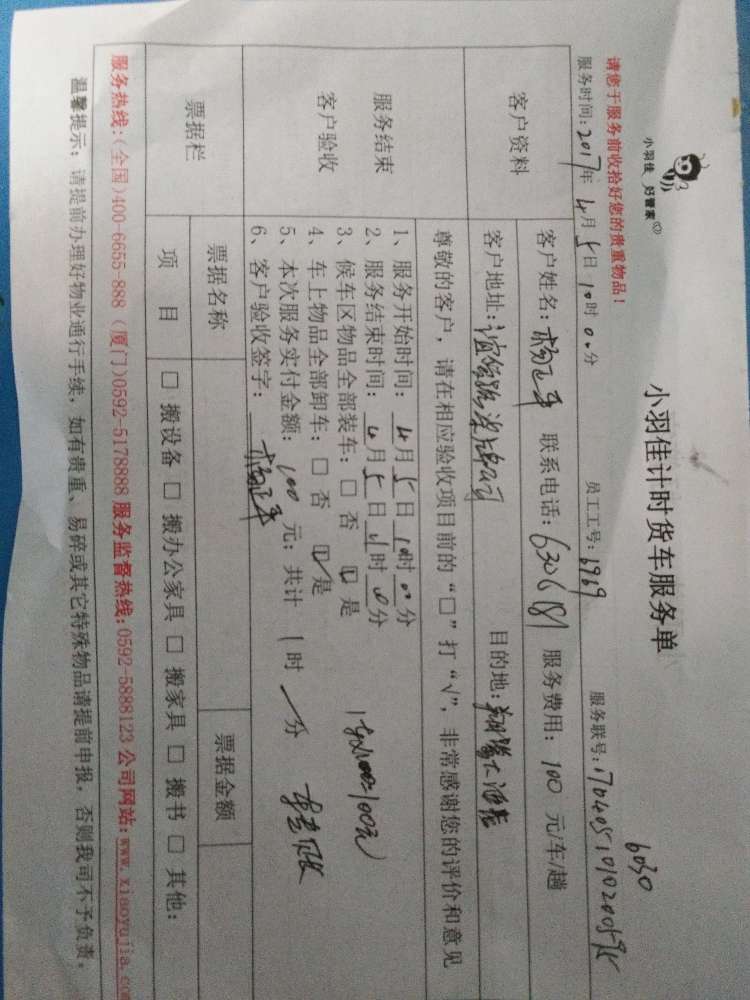 小羽佳 好管家
小羽佳计时货车服务单
6030
请您于服务前收拾好您的贵重物品!
服务时间:2017年4月5日10时00分 员工工号:6969 服务联号:
客户资料
客户姓名: 联系电话:6306181 服务费用:100元/车/趟
客户地址: 目的地:
服务结束
客户验收
尊敬的客户,请在相应验收项目前的“□”打“√”,非常感谢您的评价和意见
1、服务开始时间:4月5日10时00分
2、服务结束时间:4月5日11时00分
3、候车区物品全部装车:□ 否 ☑ 是
4、车上物品全部卸车:□ 否 ☑ 是
5、本次服务实付金额:100元;共计1时/分
6、客户验收签字:
票据栏
票据名称 票据金额
项 目 □ 搬设备 □ 搬办公家具 □ 搬家具 □ 搬书 □ 其他:
服务热线:(全国)400-6655-888 (厦门)0592-5178888 服务监督热线:0592-5888123 公司网站:www.xiaoyujia.com
温馨提示:请提前办理好物业通行手续,如有贵重、易碎或其它特殊物品请提前申报,否则我司不予负责。